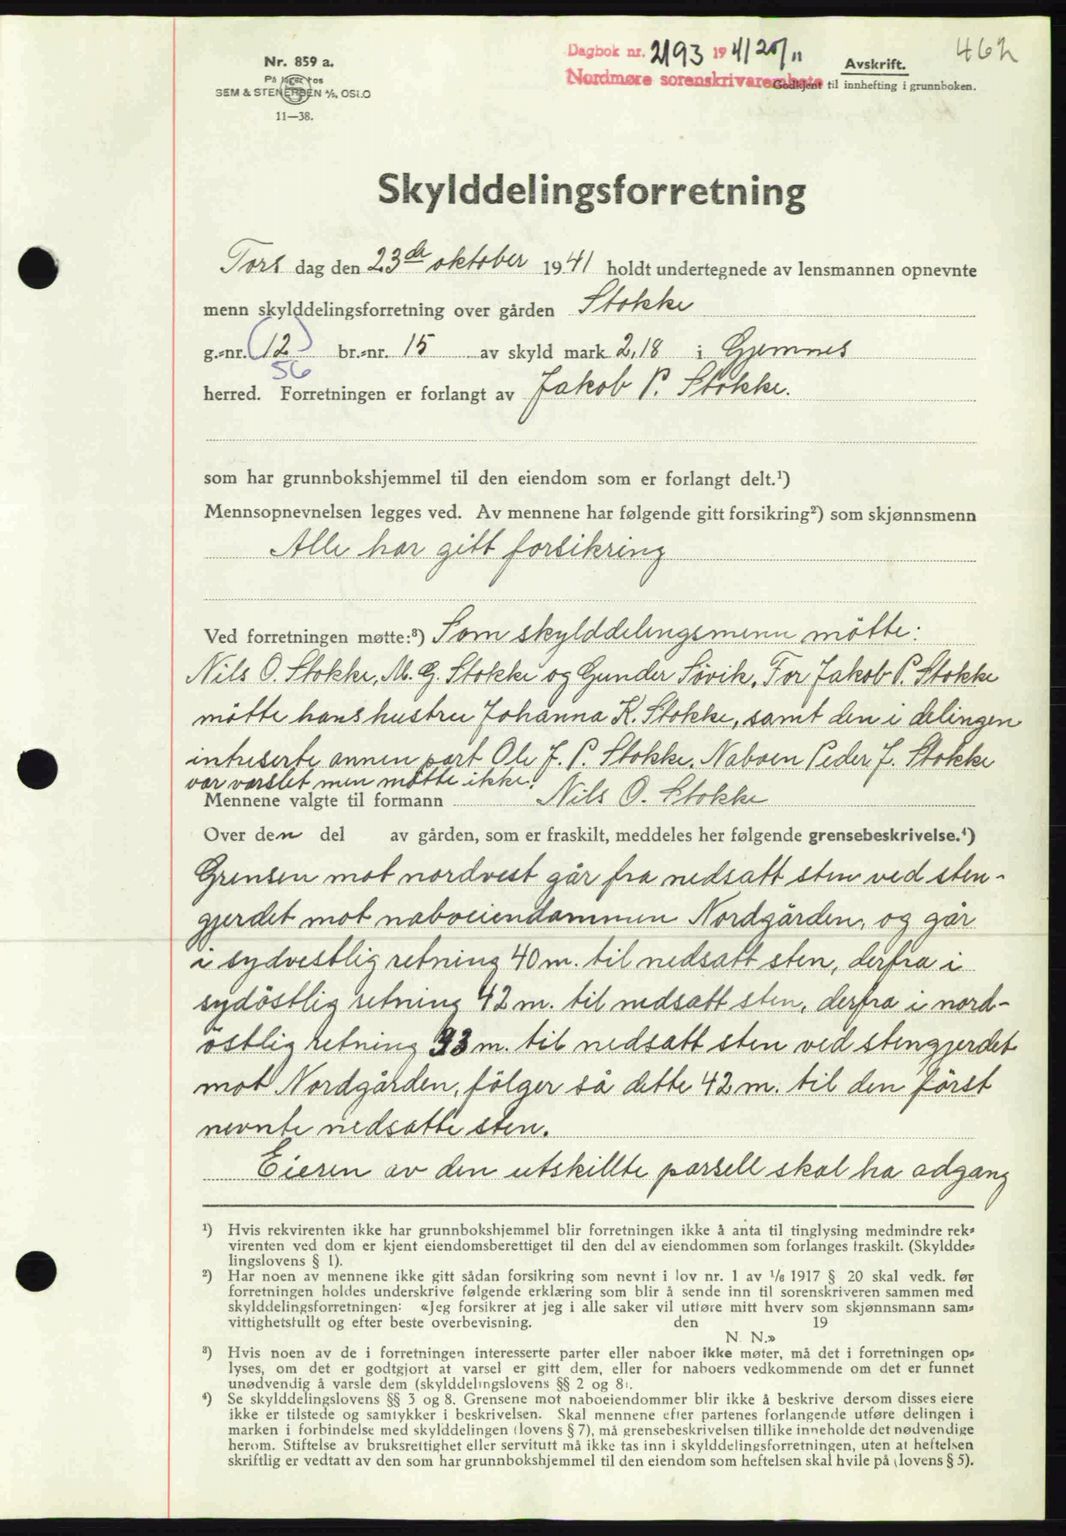 Dagbok nr. 2193 1941 20/11
Nordmøre sorenskrivarembete
462
Nr. 859 a.
På lager hos
SEM & STENERSEN A/S, OSLO
11—38.
Avskrift.
Godkjent til innhefting i grunnboken.
Skylddelingsforretning
Tors dag den 23de oktober 1941 holdt undertegnede av lensmannen opnevnte
menn skylddelingsforretning over gården Stokke
g.-nr. (12) br.-nr. 15 av skyld mark 2,18 i Gjemnes
56
herred. Forretningen er forlangt av Jakob P. Stokke.
som har grunnbokshjemmel til den eiendom som er forlangt delt.¹)
Mennsopnevnelsen legges ved. Av mennene har følgende gitt forsikring²) som skjønnsmenn
Alle har gitt forsikring
Ved forretningen møtte:³) Som skylddelingsmenn mötte:
Nils O. Stokke, M. G. Stokke og Gunder Sövik, For Jakob P. Stokke
mötte hans hustru Johanna K. Stokke, samt den i delingen
intreserte annen part Ole J. P. Stokke. Naboen Peder J. Stokke
var varslet men mötte ikke.
Mennene valgte til formann Nils O. Stokke
Over den del av gården, som er fraskilt, meddeles her følgende grensebeskrivelse.⁴)
Grensen mot nordvest går fra nedsatt sten ved sten-
gjerdet mot naboeiendommen Nordgården, og går
i sydvestlig retning 40 m. til nedsatt sten, derfra i
sydöstlig retning 42 m. til nedsatt sten, derfra i nord-
östlig retning 33 m. til nedsatt sten ved stengjerdet
mot Nordgården, fölger så dette 42 m. til den först
nevnte nedsatte sten.
Eieren av den utskillte parsell skal ha adgang
¹) Hvis rekvirenten ikke har grunnbokshjemmel blir forretningen ikke å anta til tinglysing medmindre rek-
virenten ved dom er kjent eiendomsberettiget til den del av eiendommen som forlanges fraskilt. (Skyldde-
lingslovens § 1).
²) Har noen av mennene ikke gitt sådan forsikring som nevnt i lov nr. 1 av 1/6 1917 § 20 skal vedk. før
forretningen holdes underskrive følgende erklæring som blir å sende inn til sorenskriveren sammen med
skylddelingsforretningen: «Jeg forsikrer at jeg i alle saker vil utføre mitt hverv som skjønnsmann sam-
vittighetsfullt og efter beste overbevisning. den 19
N. N.»
³) Hvis noen av de i forretningen interesserte parter eller naboer ikke møter, må det i forretningen op-
lyses, om det er godtgjort at varsel er gitt dem, eller for naboers vedkommende om det er funnet
unødvendig å varsle dem (skylddelingslovens §§ 2 og 8).
⁴) Se skylddelingslovens §§ 3 og 8. Grensene mot naboeiendommer blir ikke å beskrive dersom disses eiere
ikke er tilstede og samtykker i beskrivelsen. Skal mennene efter partenes forlangende utføre delingen i
marken i forbindelse med skylddelingen (lovens § 7), må grensebeskrivelsen tillike inneholde det nødvendige
herom. Stiftelse av bruksrettighet eller servitutt må ikke tas inn i skylddelingsforretningen, uten at heftelsen
skriftlig er vedtatt av den som har grunnbokshjemmel til den eiendom som heftelsen skal hvile på (lovens § 5).